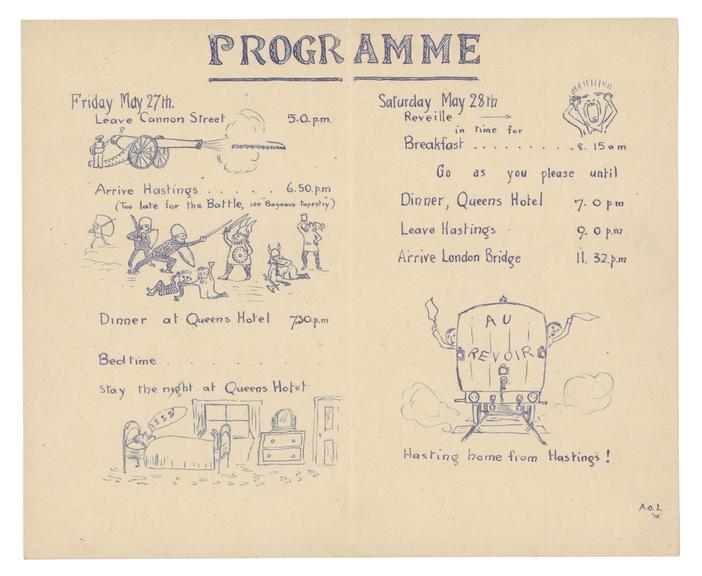 PROGRAMME
Friday May 27th.
Leave Cannon Street 5.0.p.m.
Arrive Hastings . . . . . . 6.50.p.m
(Too late for the Battle, see Bayeaux tapestry)
Dinner at Queens Hotel 7.30.p.m
Bedtime . . . . . .
stay the night at Queens Hotel
ZZZZ
Saturday May 28th
Reveille
in time for
Breakfast . . . . . . . . . . 8. 15 am
Go as you please until
Dinner, Queens Hotel 7. 0 pm
Leave Hastings 9. 0 p.m
Arrive London Bridge 11. 32.p.m
AU
REVOIR
Hasting home from Hastings !
A.O.L